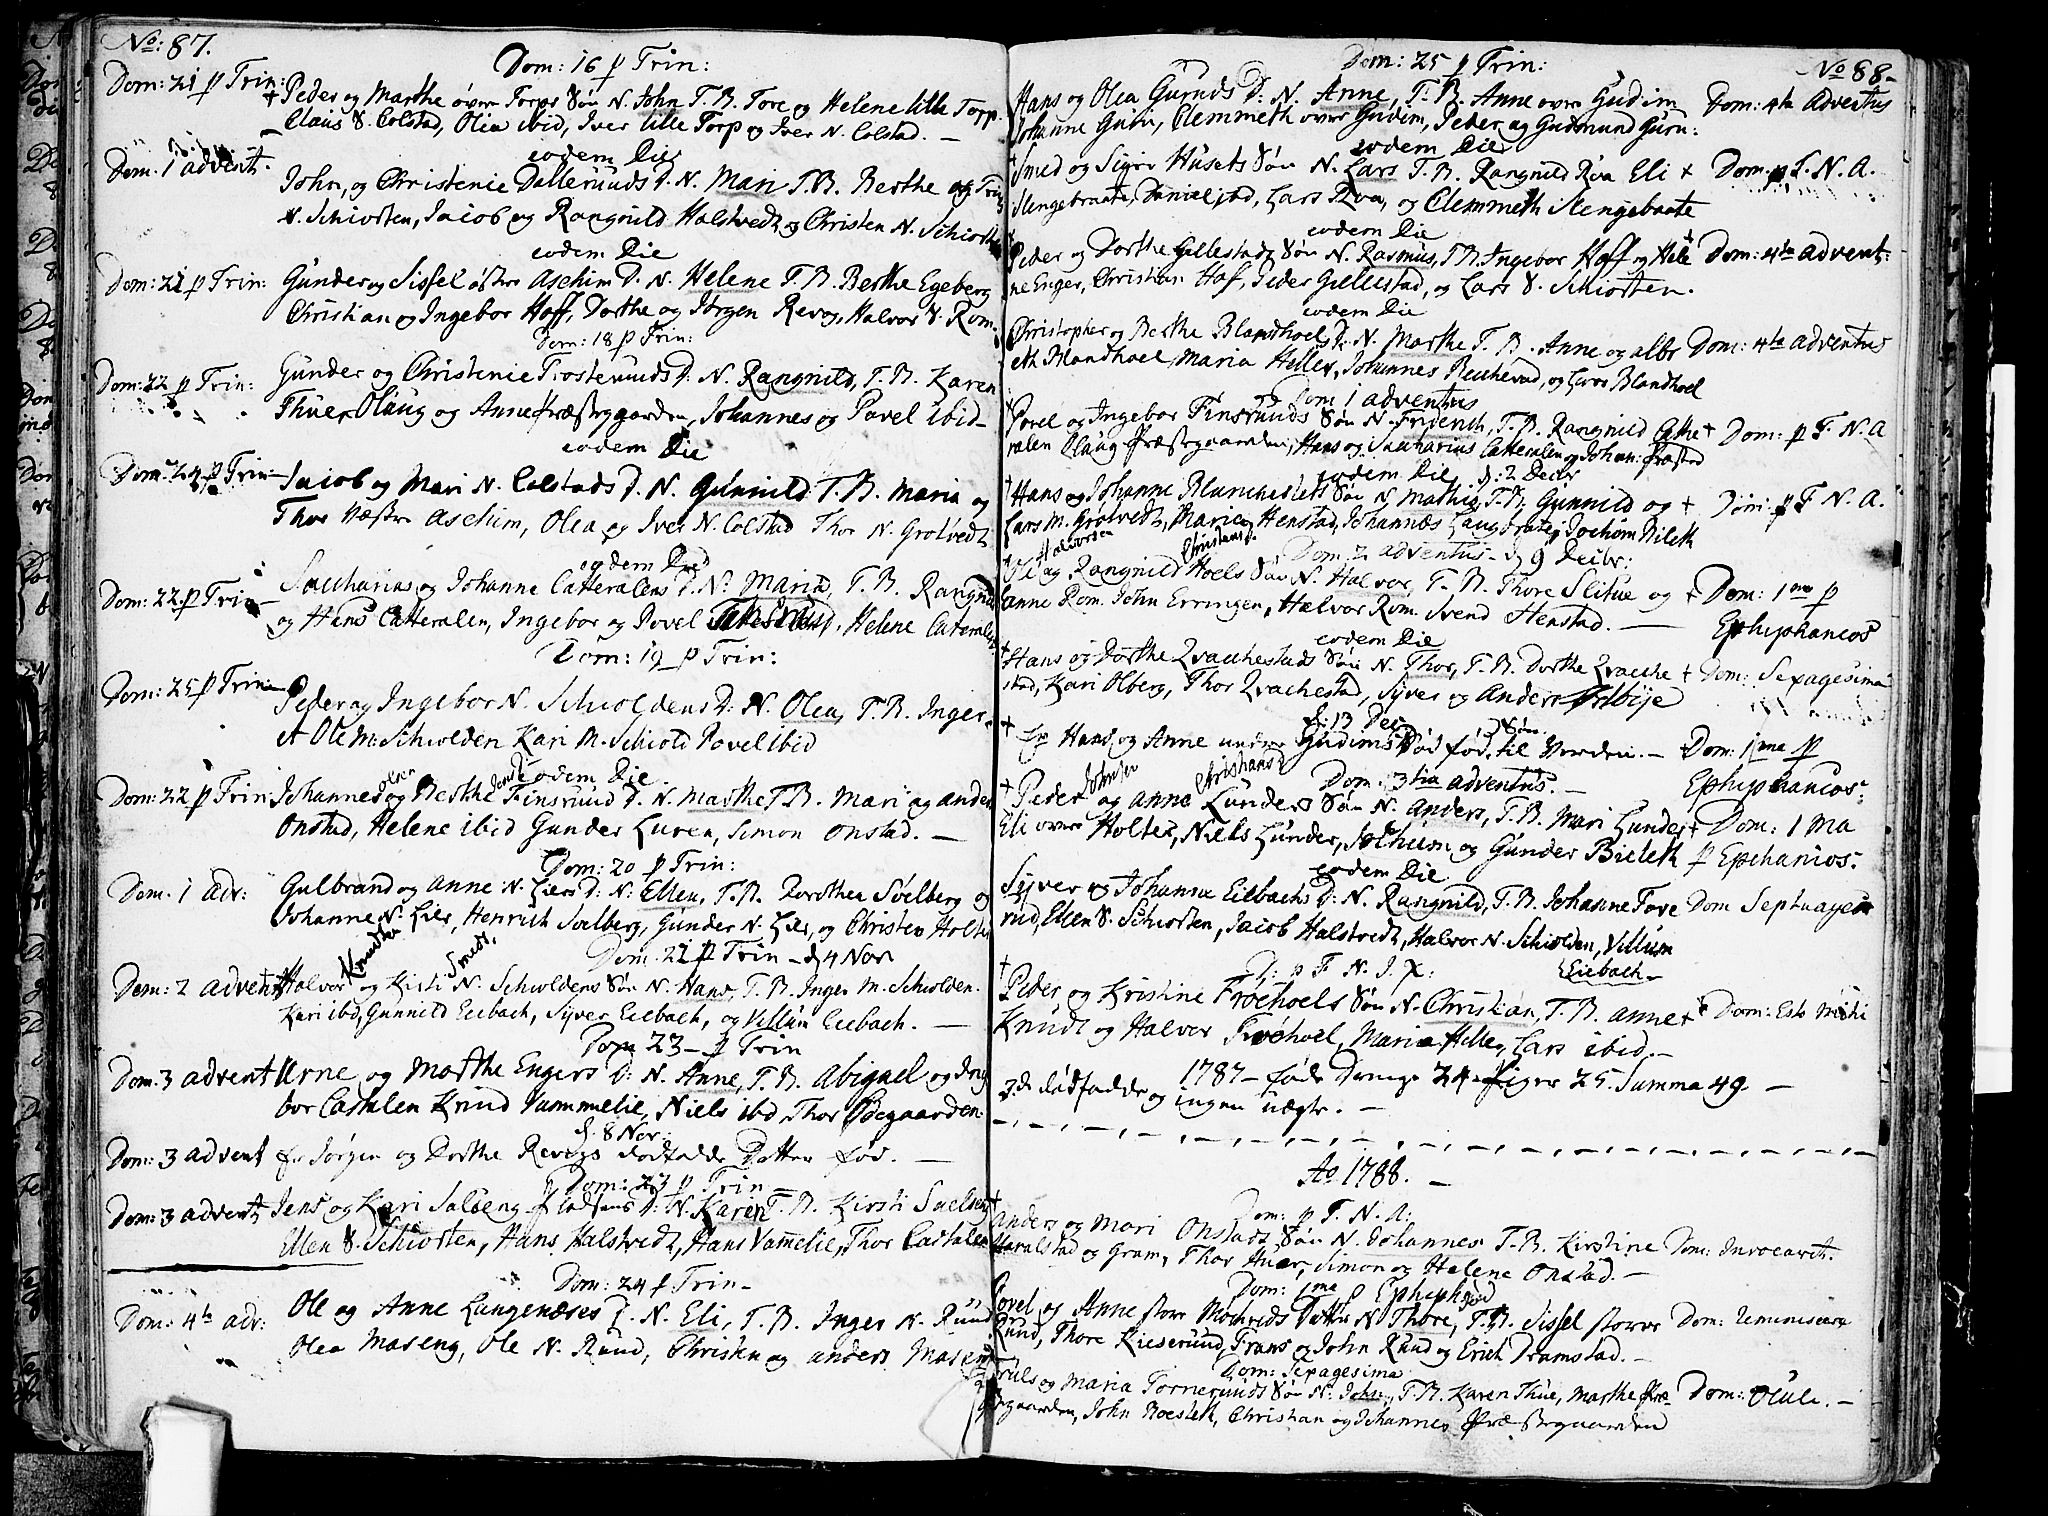 No: 87.
Dom: 16 p Trin:
Dom: 21 p Trin: + Peder og Marthe øvre Torps Søn N. John T. B. Tore og Helene lille Torp.
Claus S. Colstad, Olea ibid, Iver lille Torp og Iver N. Colstad. —
eodem Die
Dom. 1 advent. John, og Christenie Dallerunds D. N. Mari T. B. Berthe og
N. Schiorten, Jacob og Rangnild Halstvedt og Christen N. Schiorten
eodem Die
Dom: 21 p Trin: Gunder og Sissel østre Aschim D. N. Helene T. B. Berthe Egeberg
Christian og Ingebor Hoff, Dorthe og Jørgen Revog, Halvor S. Rom.
Dom: 18 p Trin:
Dom: 22 p Trin: Gunder og Christenie Trosteruds D: N. Rangnild, T. B. Karen
Thue, Olaug og Anne Præstegaarden, Johannes og Povel ibid —
eodem Die
Dom: 24 p Trin — Jacob og Mari N. Colstads D. N. Gunnild T. B. Maria og
Thor Væstre Aschim, Olea og Iver N. Colstad Thor N. Grøtvedt
eodem Die
Dom: 22 p Trin — Saccharias og Johanne Catteralens D. N. Maria, T. B. Rangnild
og Hans Catteralen, Ingebor og Povel, Helene Cateralen
Dom: 19 p Trin:
Dom: 25 p Trin — Peder og Ingebor N. Schioldens D: N. Olea, T. B. Inger
et Ole M: Schiolden Kari M. Schiold Povel ibid
eodem Die.
Dom: 22 p Trin Johannes Olsen og Berthe Jensd: Finsrud D. N. Marthe, T. B. Mari og Anders
Onstad, Helene ibid Gunder Luren, Simon Onstad. —
Dom: 20 p Trin:
Dom. 1 adv: Gulbrand og Anne N. Liers D: N: Ellen, T. B. Dorthea Solberg og
Johanne N. Lier, Henrich Solberg, Gunder N. Lier, og Christen Holte
Dom. 21 p Trin — d 4 Nov
Dom: 2 advent Halvor Knudsen og Kirsti Smeds. N. Schioldens Søn N. Hans, T. B. Inger M. Schiolden.
Kari ibd, Gunnild Eiebach, Syver Eiebach, og Villum Eiebach. —
Dom 23 — p Trin
Dom. 3 advent Arne og Marthe Engers D: N. Anne, T. B. Abigael og Inge
bor Castalen Knud Vammelie, Niels ibd Thor Ødegaarden.
d. 8 Nov:
Dom: 3 advent En Jørgen og Dorthe Revogs dødfødde Datter fød. —
Dom: 23 p Trin —
Dom: 3 advent Jens og Kari D: N. Karen T. B. Kirsti
Ellen S. Schiorten, Hans Halstvedt, Hans Vammelie, Thor Castalen
Dom: 24 p Trin —
Dom: 4te adv: Ole og Anne Langenæses D. N. Eli, T. B. Inger N. Ruud
Olea Maseng, Ole N. Ruud, Christen og Anders Maseng
No 88.
Dom: 25 p Trin:
Hans og Olea Guruds D. N. Anne, T. B. Anne øvre Gudim Dom: 4te Adventus
Johanne Guru, Clemmeth øvre Gudim, Peder og Gudmund Guru:
eodem Die
+ Smed og Sigri Husets Søn N. Lars T. B. Rangnild Rva Eli + Dom. p F. N. A.
Slengebraate, Daniel ibd, Lars Rva, og Clemmeth Slengebraate
eodem Die
Peder og Dorthe Gillestads Søn N. Rasmus, T. B. Ingebor Hoff og Hele Dom: 4te advent:
ne Enger, Christian Hof, Peder Gillestad, og Lars S. Schiorten.
eodem Die
Christopher og Berthe Blandhoels D. N. Marthe T. B. Anne og Elbr Dom: 4te adventus
eth Blandhoel, Maria Heller, Johannes, og Lars Blandhoel
Dom 1 adventus
+ Povel og Ingebor Finsruuds Søn N. Friderich, T. B. Rangnild Catte + Dom: p F. N. A
ralen Olaug Præstegaarden, Hans og Saccharius Catteralen og Johan: Præsted
eodem Die d: 2 Decbr
+ Hans og Johanne Blanchesteds Søn N. Mathis, T. B. Gunnild og + Dom: p F. N. A.
Lars M. Grøtvedt, Marie Henstad, Johannes Laugbrate, Jochum Bileth
Dom. 2 adventus — d 9 Decbr:
+ Ole Halvorsen og Rangnild Christensd. Hoels Søn N. Halvor, T. B. Thore Slitue og + Dom: 1ma p
Anne Rom. John Erringen, Halvor Rom. Svend Henstad. — Ephiphanios
eodem Die
+ Hans og Dorthe Qvachestads Søn N. Thor, T. B. Dorthe Qvache + Dom: Sexagesima
stad, Kari Olberg, Thor Qvachestad, Syver og Anders
d: 13 Dec
+ En Hans og Anne under Gudims Død fød Søn til Verden. — Dom: 1ma p
Dom: 3tia adventus. — Ephiphanios
+ Peder Johnsen og Anne Christiansd Lunders Søn N. Anders, T. B. Mari Lunder + Dom: 1 ma
Eli øvre Holter, Niels Lunder, Jochum og Gunder Bieleth p Epihanios.
eodem Die
Syver og Johanne Eiebachs D: N. Rangnild, T. B. Johanne Tove Dom Septuages
rud, Ellen S. Schiorten, Jacob Halstvedt, Halvor N. Schiolden, Villum
Eiebach —
D: p F. N. I. X:
+ Peder og Kristine Frøehoels Søn N. Christian, T. B. Anne + Dom: Esto Mihi
Knudt og Halvor Frøehoel, Maria Heller, Lars ibid. —
1787 — fødte Drenge 24 Piger 25. Summa 49. —
3de dødfødde og ingen uægte. —
Ao 1788. —
Dom: p F. N. A:
+ Anders og Mari Onstads Søn N. Johannes T. B. Kirstine Dom: Invocavit.
Haralstad og Gram, Thor Huer, Simon og Helene Onstad. —
Dom: 1ma p Ephiph:
Povel og Anne store Mochreds Datter N Thore, T. B. Sissel storre Dom: Reminiscere
Ruud, Thore Kieserud, Frans og John Ruud og Erich Dramstad. —
Dom: Sexagesima
Truls og Maria Torneruuds Søn N. John, T. B. Karen Thue, Marthe Præ- Dom: Oculi. —
stegaarden, John Roeseth, Christian og Johannes Præstegaarden